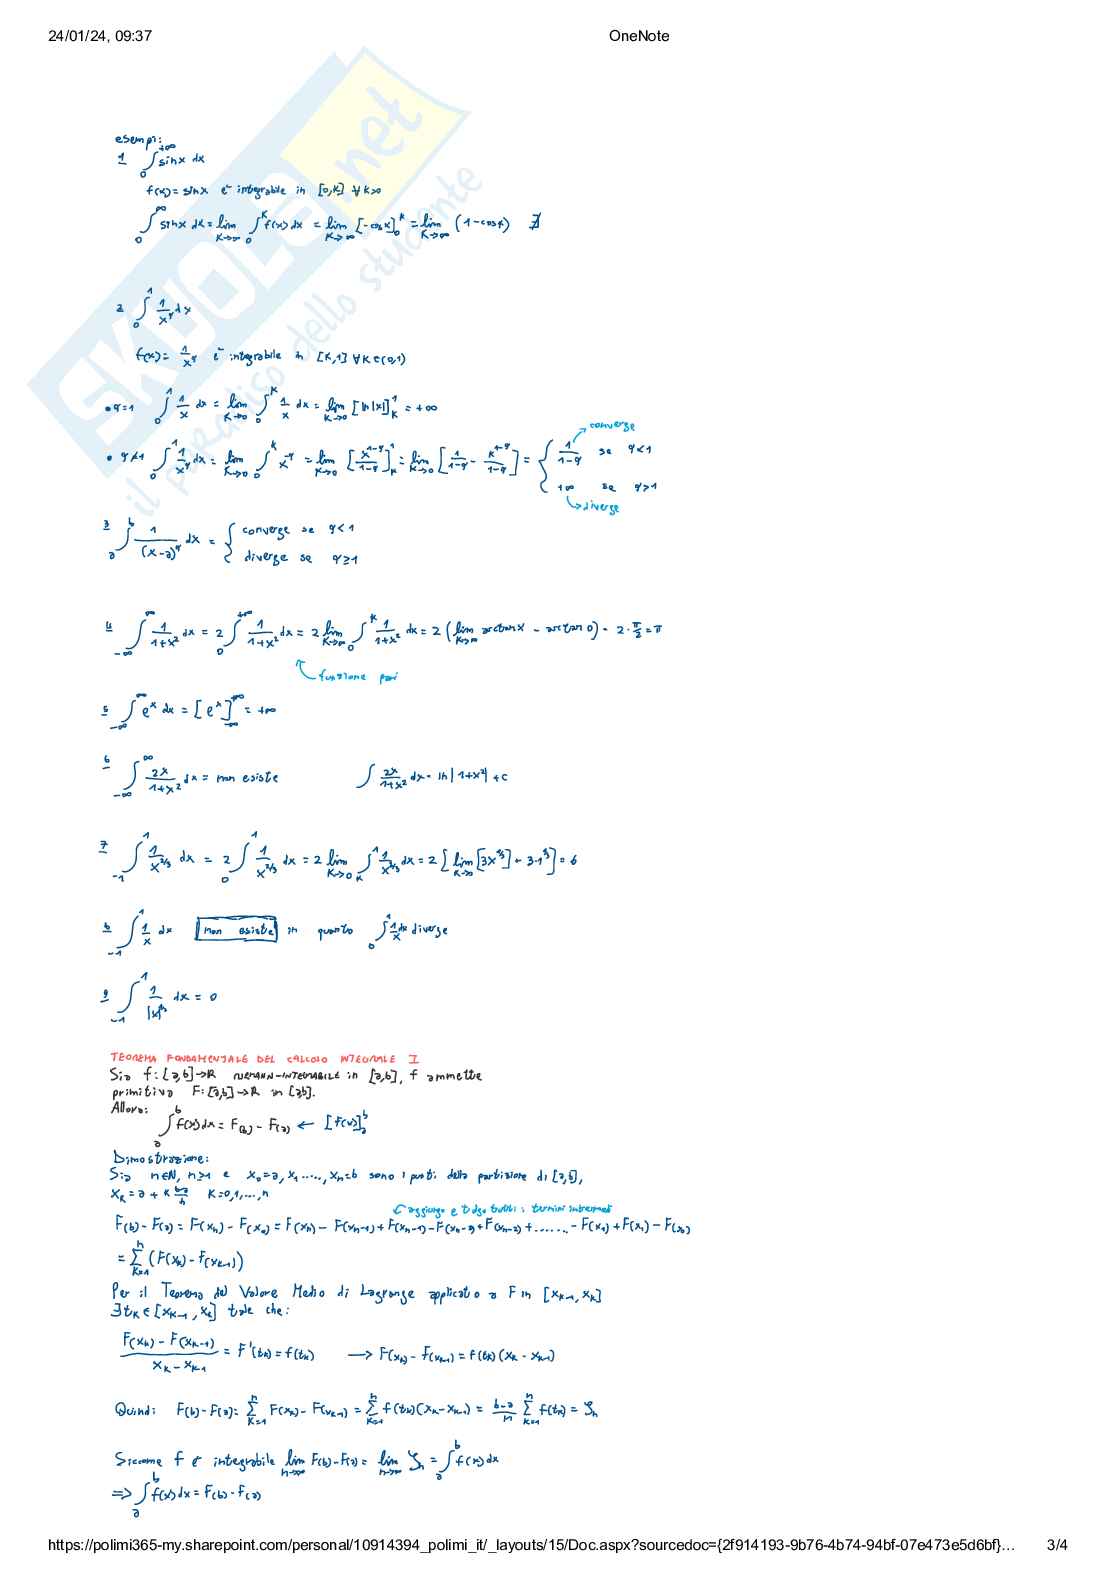 24/01/24, 09:37 OneNote
SKUOLA.net
il paradiso dello studente
esempi:
1 ∫₀^{+∞} sinx dx
f(x) = sinx è integrabile in [0,K] ∀K>0
∫₀^∞ sinx dx = lim_{K→∞} ∫₀^K f(x) dx = lim_{K→∞} [-cosx]₀^K = lim_{K→∞} (1-cosk) ∄
2 ∫₀^1 1/x^α dx
f(x) = 1/x^α è integrabile in [K,1] ∀K∈(0,1)
• α=1 ∫₀^1 1/x dx = lim_{K→0} ∫₀^K 1/x dx = lim_{K→0} [ln|x|]_K^1 = +∞
converge
• α≠1 ∫₀^1 1/x^α dx = lim_{K→0} ∫₀^K x^{-α} = lim_{K→0} [x^{1-α}/(1-α)]_K^1 = lim_{K→0} [1/(1-α) - K^{1-α}/(1-α)] = { 1/(1-α) se α<1
+∞ se α>1
diverge
3 ∫_a^b 1/(x-a)^α dx = { converge se α<1
diverge se α≥1
4 ∫_{-∞}^∞ 1/(1+x²) dx = 2 ∫₀^{+∞} 1/(1+x²) dx = 2 lim_{K→∞} ∫₀^K 1/(1+x²) dx = 2 (lim_{K→∞} arctanx - arctan0) = 2·π/2 = π
funzione pari
5 ∫_{-∞}^∞ e^x dx = [e^x]_{-∞}^{+∞} = +∞
6 ∫_{-∞}^∞ 2x/(1+x²) dx = non esiste ∫ 2x/(1+x²) dx = ln|1+x²| + c
7 ∫_{-1}^1 1/x^{2/3} dx = 2 ∫₀^1 1/x^{2/3} dx = 2 lim_{K→0} ∫_K^1 1/x^{2/3} dx = 2 [lim_{K→0} [3x^{1/3}] + 3·1^{1/3}] = 6
8 ∫_{-1}^1 1/x dx non esiste in quanto ∫₀^1 1/x dx diverge
9 ∫_{-1}^1 dx = 0
TEOREMA FONDAMENTALE DEL CALCOLO INTEGRALE I
Sia f: [a,b]→ℝ RIEMANN-INTEGRABILE in [a,b], f ammette
primitiva F: [a,b]→ℝ in [a,b].
Allora:
∫_a^b f(x) dx = F(b) - F(a) ← [F(x)]_a^b
Dimostrazione:
Sia n∈ℕ, n≥1 e x₀=a, x₁, ...., xₙ=b sono i punti della partizione di [a,b],
x_K = a + K (b-a)/n K=0,1,...,n
aggiungo e tolgo tutti i termini intermedi
F(b) - F(a) = F(xₙ) - F(x₀) = F(xₙ) - F(xₙ₋₁) + F(xₙ₋₁) - F(xₙ₋₂) + F(xₙ₋₂) + ....... - F(x₁) + F(x₁) - F(x₀)
= Σ_{K=1}^n (F(x_K) - F(x_{K-1}))
Per il Teorema del Valore Medio di Lagrange applicato a F in [x_{K-1}, x_K]
∃ t_K ∈ [x_{K-1}, x_K] tale che:
(F(x_K) - F(x_{K-1}))/(x_K - x_{K-1}) = F'(t_K) = f(t_K) → F(x_K) - F(x_{K-1}) = f(t_K)(x_K - x_{K-1})
Quindi: F(b) - F(a) = Σ_{K=1}^n F(x_K) - F(x_{K-1}) = Σ_{K=1}^n f(t_K)(x_K - x_{K-1}) = (b-a)/n Σ_{K=1}^n f(t_K) = Sₙ
Siccome f è integrabile lim_{n→∞} F(b) - F(a) = lim_{n→∞} Sₙ = ∫_a^b f(x) dx
⇒ ∫_a^b f(x) dx = F(b) - F(a)
https://polimi365-my.sharepoint.com/personal/10914394_polimi_it/_layouts/15/Doc.aspx?sourcedoc={2f914193-9b76-4b74-94bf-07e473e5d6bf}… 3/4